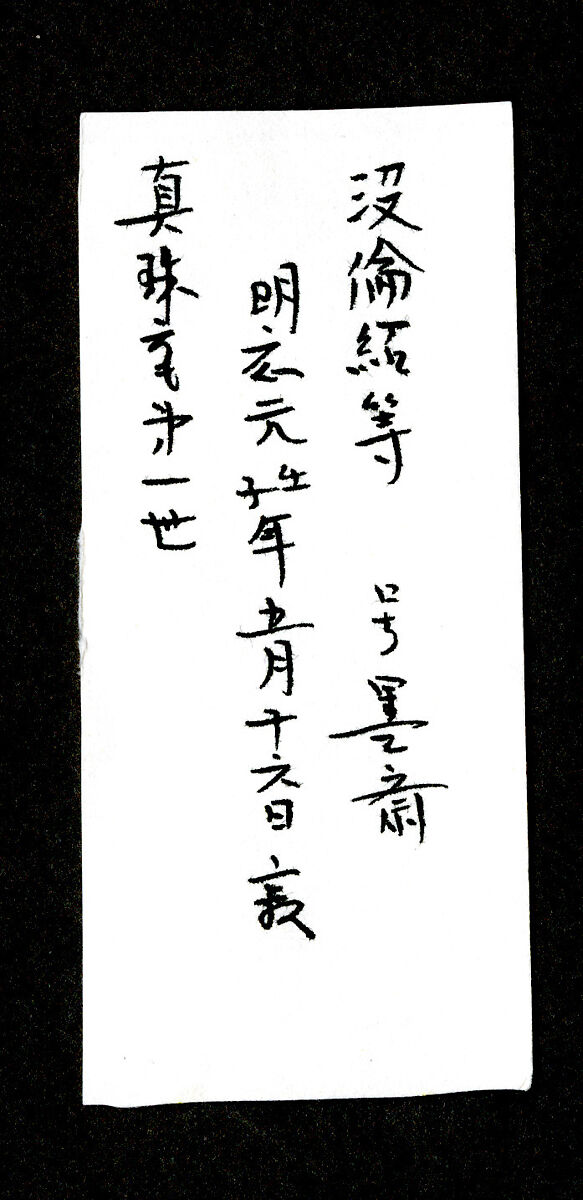 没倫紹等 号墨斎
明応元壬子年五月十六日寂
真珠庵第一世